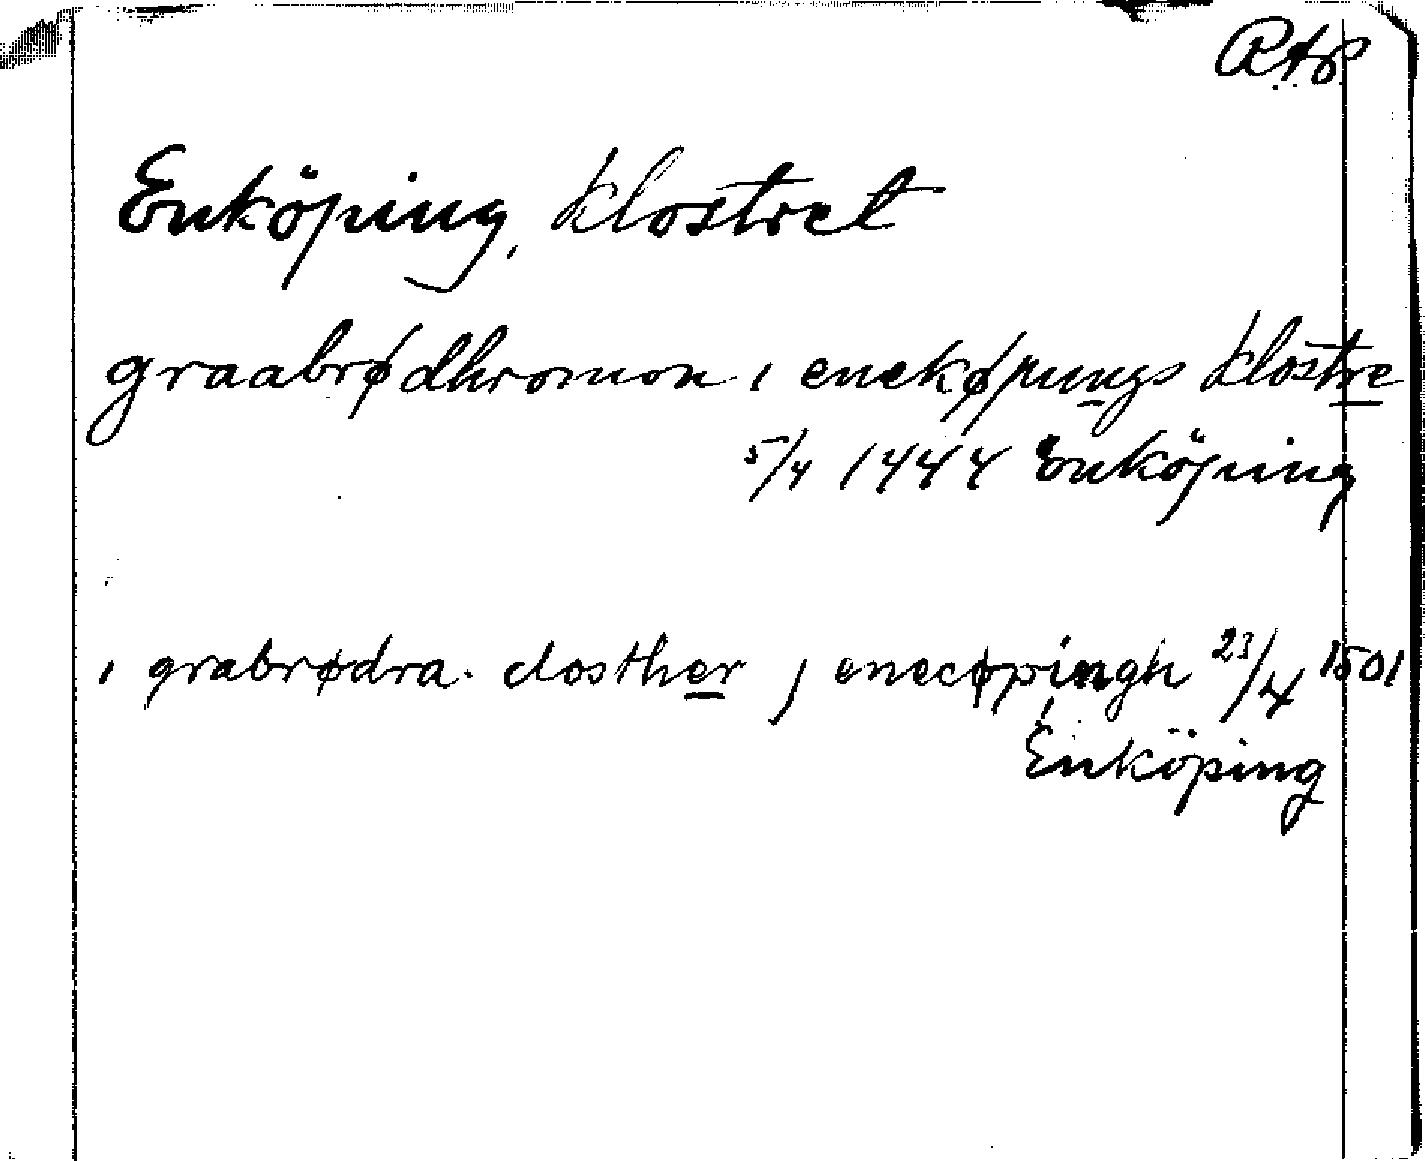 RAp
Enköping, klostret
graabrødhromon i enekøpungs klostre
5/4 1444 Enköping
i grabrødra closther j enecøpingh 23/4 1501
Enköping